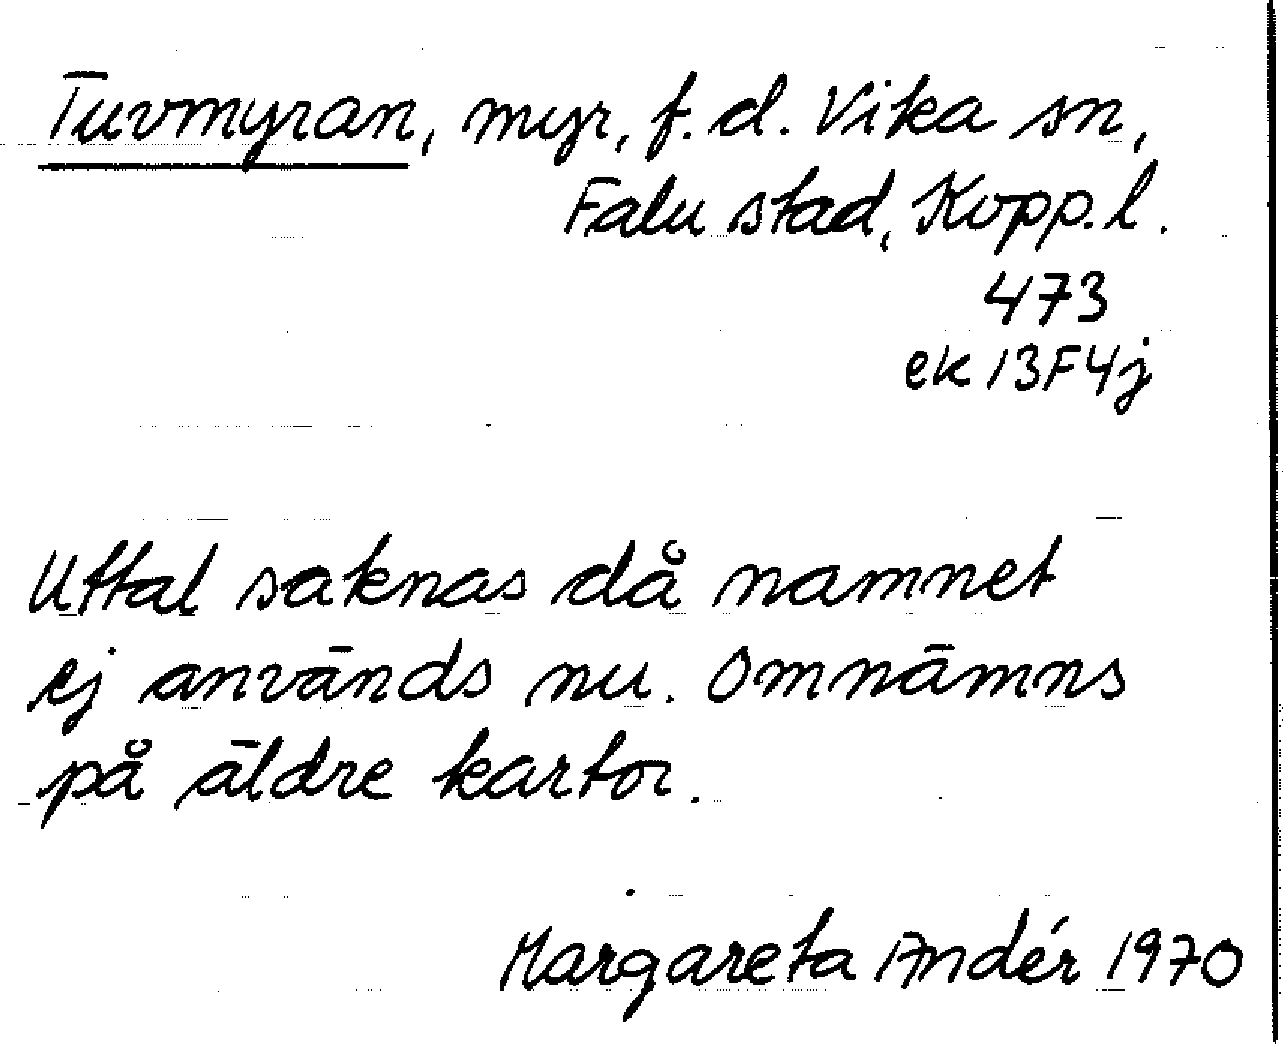 Tuvmyran, myr, f.d. Vika sn,
Falu stad, Kopp.l.
473
ek 13F4j
Uttal saknas då namnet
ej används nu. Omnämns
på äldre kartor.
Margareta Andér 1970